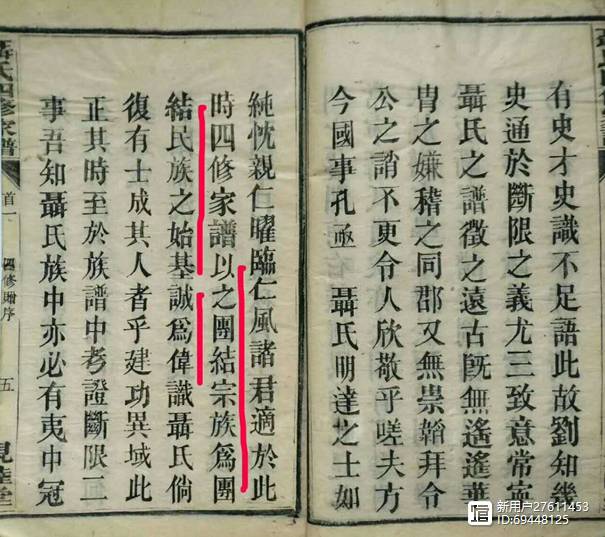 有史才史識不足語此故劉知幾
史通於斷限之義尤三致意常寧
聶氏之譜徵之遠古旣無遙遙華
冑之嫌稽之同郡又無崇韜拜令
公之誚不更令人欣敬乎嗟夫方
今國事孔亟 聶氏明達之士如
純忱親仁曜臨仁風諸君適於此
時四修家譜以之團結宗族爲團
結民族之始基誠爲偉識聶氏倘
復有士成其人者乎建功異域此
正其時至於族譜中考證斷限二
事吾知聶氏族中亦必有夷中冠
聶氏四修家譜
首一
四修贈序
五
新用户27611453
ID:69448125